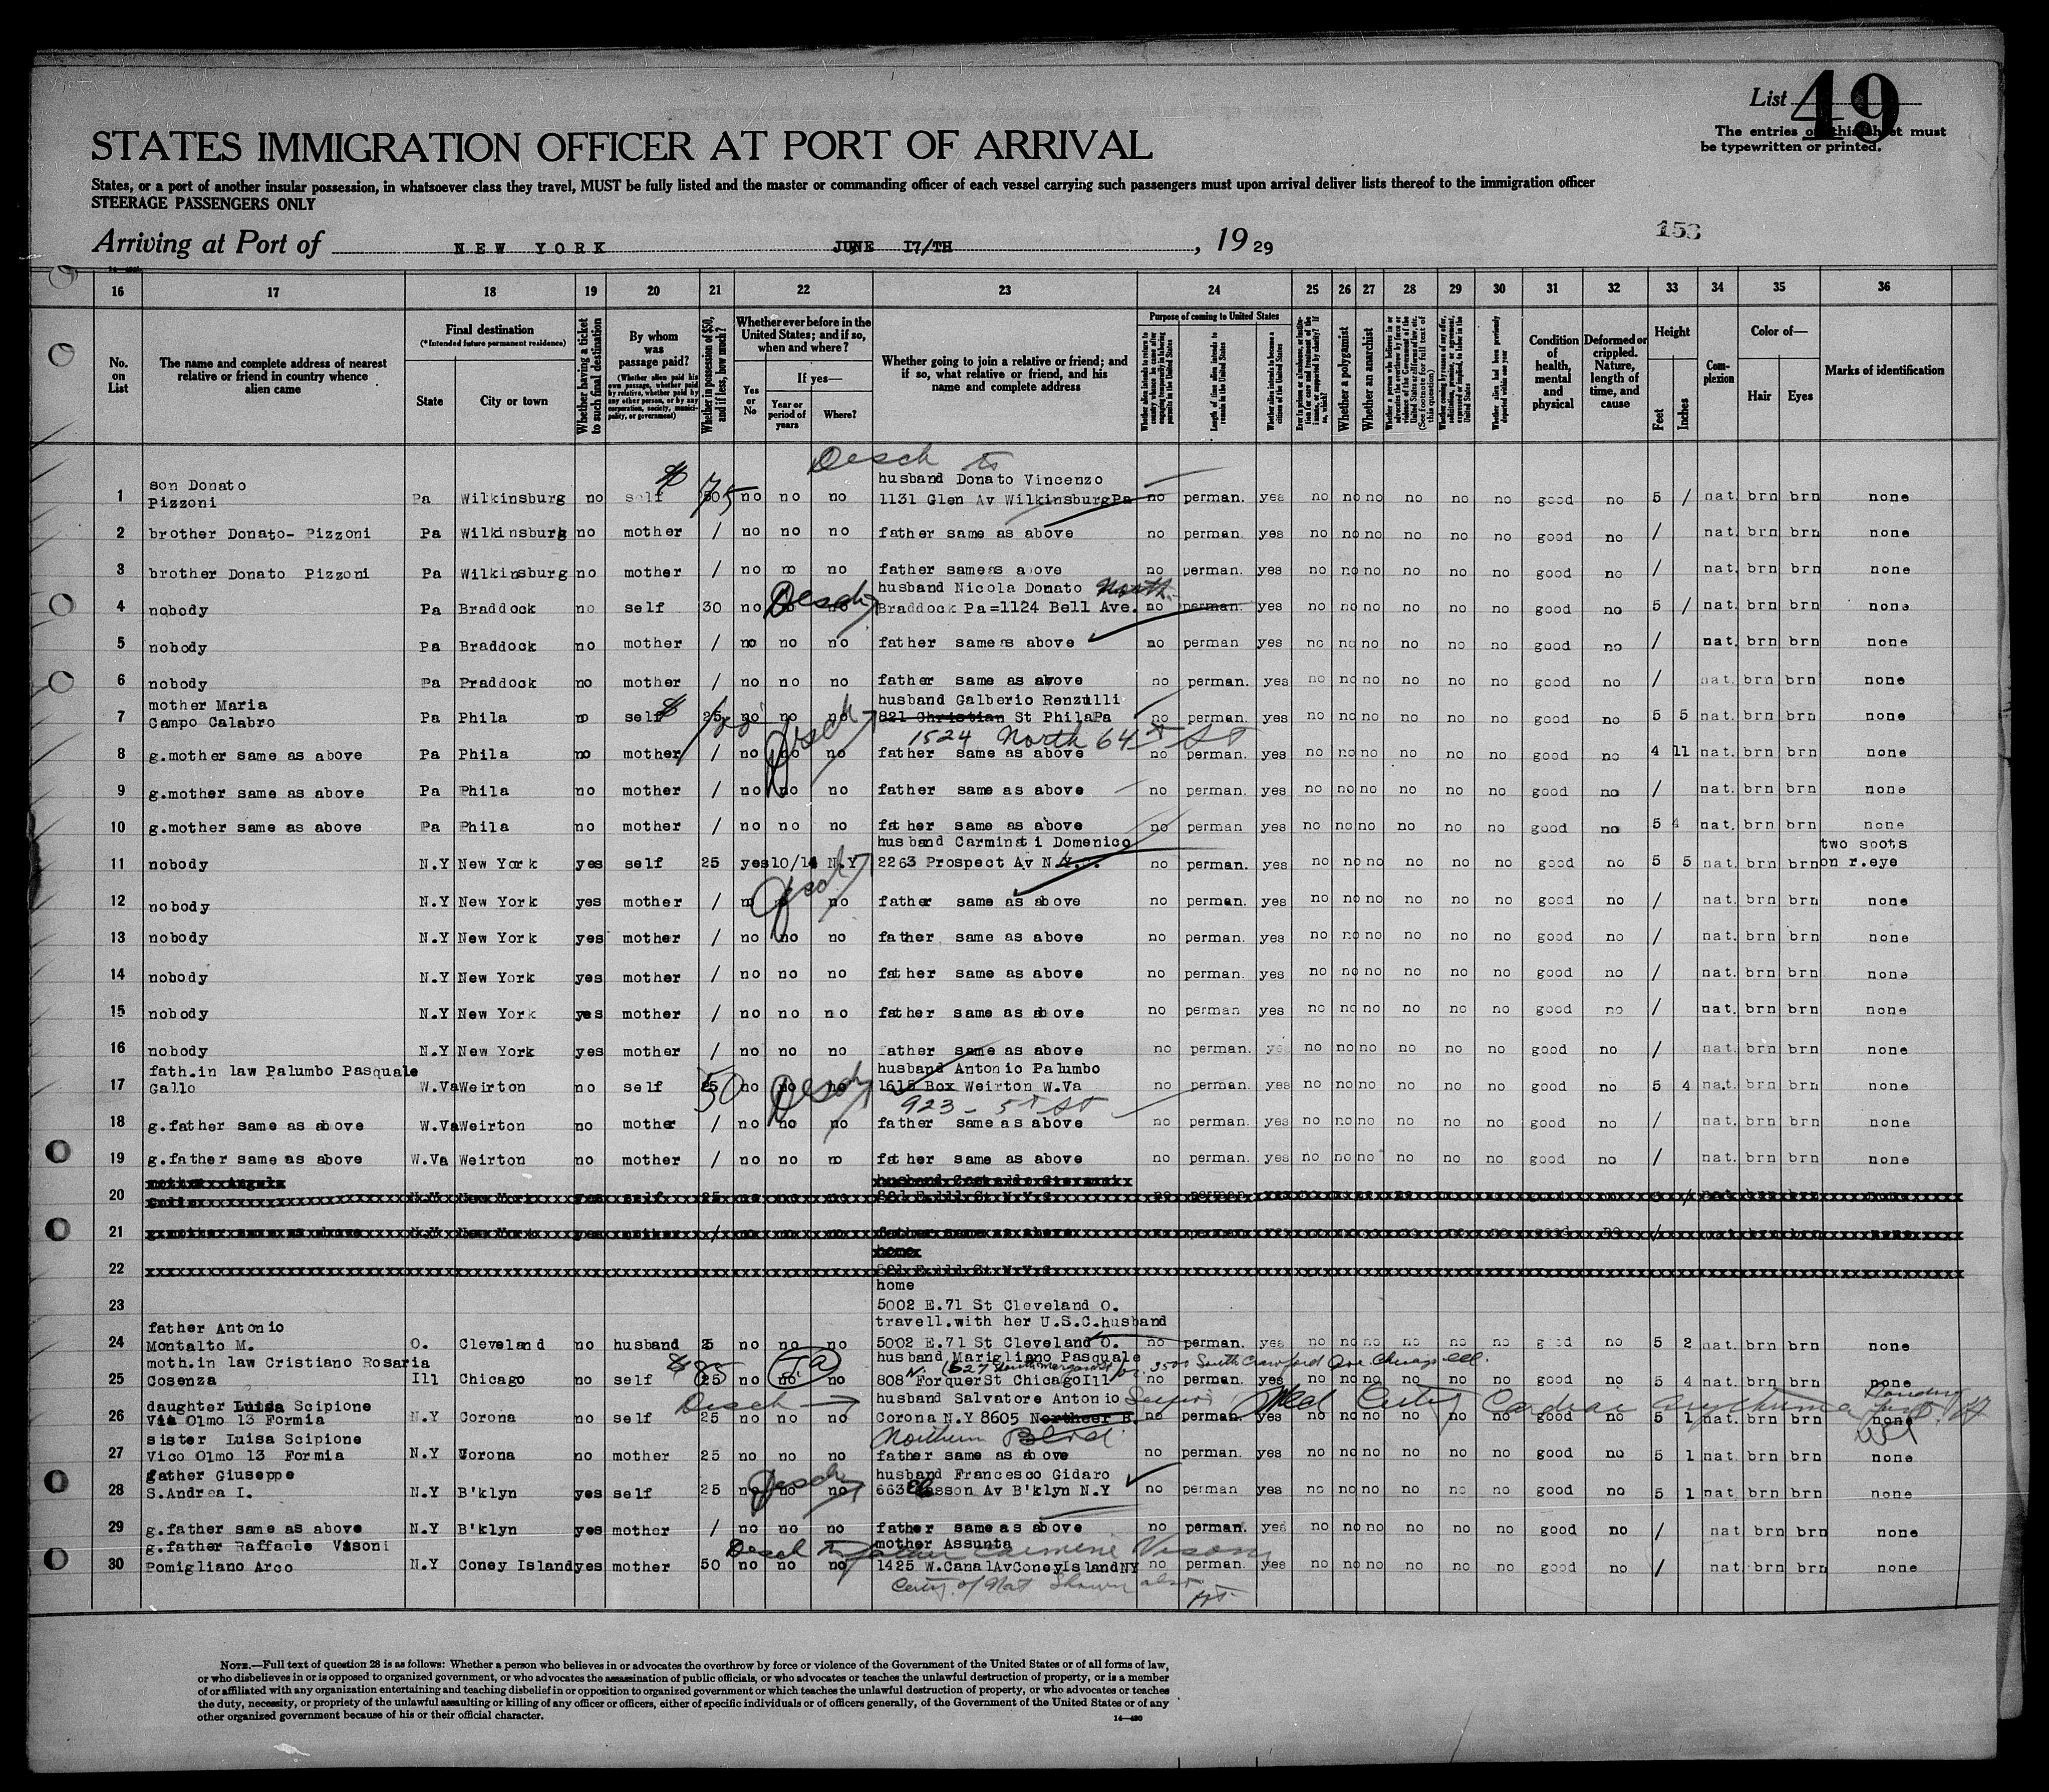 List 49
The entries on this sheet must
be typewritten or printed.
STATES IMMIGRATION OFFICER AT PORT OF ARRIVAL
States, or a port of another insular possession, in whatsoever class they travel, MUST be fully listed and the master or commanding officer of each vessel carrying such passengers must upon arrival deliver lists thereof to the immigration officer
STEERAGE PASSENGERS ONLY
153
Arriving at Port of NEW YORK JUNE 17/TH, 1929
16 17 18 19 20 21 22 23 24 25 26 27 28 29 30 31 32 33 34 35 36
No. on List
The name and complete address of nearest relative or friend in country whence alien came
Final destination
(*Intended future permanent residence)
State
City or town
Whether having a ticket to such final destination
By whom was passage paid?
(Whether alien paid his own passage, whether paid by relative, whether paid by any other person, or by any corporation, society, municipality, or government)
Whether in possession of $50, and if less, how much?
Whether ever before in the United States; and if so, when and where?
Yes or No
If yes—
Year or period of years
Where?
Whether going to join a relative or friend; and if so, what relative or friend, and his name and complete address
Purpose of coming to United States
Length of time alien intends to remain in the United States
Whether alien intends to become a citizen of the United States
Whether a polygamist
Whether an anarchist
Whether alien had been previously deported within one year
Condition of health, mental and physical
Deformed or crippled. Nature, length of time, and cause
Height
Feet
Inches
Complexion
Color of—
Hair
Eyes
Marks of identification
Desch to
son Donato husband Donato Vincenzo
1 Pizzoni Pa Wilkinsburg no self 75 no no no 1131 Glen Av Wilkinsburg Pa no perman. yes no no no no no no good no 5 / nat. brn brn none
2 brother Donato- Pizzoni Pa Wilkinsburg no mother / no no no father same as above no perman. yes no no no no no no good no / nat. brn brn none
3 brother Donato Pizzoni Pa Wilkinsburg no mother / no no no father same as above no perman. yes no no no no no no good no / nat. brn brn none
husband Nicola Donato North
4 nobody Pa Braddock no self 30 no no no Desch Braddock Pa=1124 Bell Ave. no perman. yes no no no no no no good no 5 / nat. brn brn none
5 nobody Pa Braddock no mother / no no no father same as above no perman yes no no no no no no good no / nat. brn brn none
6 nobody Pa Praddock no mother / no no no father same as above no perman. yes no no no no no no good no / nat. brn brn none
mother Maria husband Galberio Renzulli
7 Campo Calabro Pa Phila no self 25 no no no Desch 821 Christian St Phila Pa no perman. yes no no no no no no good no 5 5 nat. brn brn none
1524 North 64 St
8 g.mother same as above Pa Phila no mother / no no no father same as above no perman. yes no no no no no no good no 4 11 nat. brn brn none
9 g.mother same as above Pa Phila no mother / no no no father same as above no perman. yes no no no no no no good no / nat. brn brn none
10 g.mother same as above Pa Phila no mother / no no no father same as above no perman yes no no no no no no good no 5 4 nat. brn brn none
husband Carminati Domenico two spots
11 nobody N.Y New York yes self 25 yes 10/14 N.Y 2263 Prospect Av N.Y. no perman. yes no no no no no no good no 5 5 nat. brn brn on r.eye
12 nobody N.Y New York yes mother / no no no Desch father same as above no perman. yes no no no no no no good no / nat. brn brn none
13 nobody N.Y New York yes mother / no no no father same as above no perman. yes no no no no no no good no / nat. brn brn none
14 nobody N.Y New York yes mother / no no no father same as above no perman. yes no no no no no no good no / nat. brn brn none
15 nobody N.Y New York yes mother / no no no father same as above no perman yes no no no no no no good no / nat. brn brn none
16 nobody N.Y New York yes mother / no no no father same as above no perman. yes no no no no no no good no / nat. brn brn none
fath.in law Palumbo Pasquale husband Antonio Palumbo
17 Gallo W.Va Weirton no self 50 no no no Desch 1615 Box Weirton W.Va no perman. yes no no no no no no good no 5 4 nat. brn brn none
923 - 5th St
18 g.father same as above W.Va Weirton no mother / no no no father same as above no perman. yes no no no no no no good no / nat. brn brn none
19 g.father same as above W.Va Weirton no mother / no no no father same as above no perman. yes no no no no no no good no / nat. brn brn none
mother Angela
20 N.Y New York yes self 25 no no no 321 E.111 St N.Y.
21 g.mother same as above N.Y New York yes mother / no no no father same as above
home
22 321 E.111 St N.Y.
home
23 5002 E.71 St Cleveland O.
father Antonio travell.with her U.S.C.husband
24 Montalto M. O. Cleveland no husband 25 no no no 5002 E.71 St Cleveland O. no perman. yes no no no no no no good no 5 2 nat. brn brn none
moth.in law Cristiano Rosaria $85 husband Marigliano Pasquale 3500 South Crawford Ave Chicago Ill.
25 Cosenza Ill Chicago no self 25 no no no 808 Forquer St Chicago Ill no perman. yes no no no no no no good no 5 4 nat. brn brn none
daughter Luisa Scipione Desch husband Salvatore Antonio Scipione Med Certif Cardiac arrythmia
26 Via Olmo 13 Formia N.Y Corona no self 25 no no no Corona N.Y 8605 Northeer B. no perman. yes no no no no no no no 5 1 nat. brn brn none
sister Luisa Scipione Northern Blvd.
27 Vico Olmo 13 Formia N.Y Corona no mother 25 no no no father same as above no perman. yes no no no no no no good no 5 1 nat. brn brn none
father Giuseppe husband Francesco Gidaro
28 S.Andrea I. N.Y B'klyn yes self 25 no no no Desch 663 Classon Av B'klyn N.Y no perman yes no no no no no no good no 5 1 nat. brn brn none
29 g.father same as above N.Y B'klyn yes mother / no no no father same as above no perman. yes no no no no no no good no / nat brn brn none
g.father Raffaele Visoni mother Assunta Desch to father Carmine Visoni
30 Pomigliano Arco N.Y Coney Island yes mother 50 no no no 1425 W.Canal Av Coney Island NY no perman. yes no no no no no no good no / nat brn brn none
Certif. of Nat shown also
NOTE.—Full text of question 28 is as follows: Whether a person who believes in or advocates the overthrow by force or violence of the Government of the United States or of all forms of law,
or who disbelieves in or is opposed to organized government, or who advocates the assassination of public officials, or who advocates or teaches the unlawful destruction of property, or is a member
of or affiliated with any organization entertaining and teaching disbelief in or opposition to organized government or which teaches the unlawful destruction of property, or who advocates or teaches
the duty, necessity, or propriety of the unlawful assaulting or killing of any officer or officers, either of specific individuals or of officers generally, of the Government of the United States or of any
other organized government because of his or their official character.
14—430